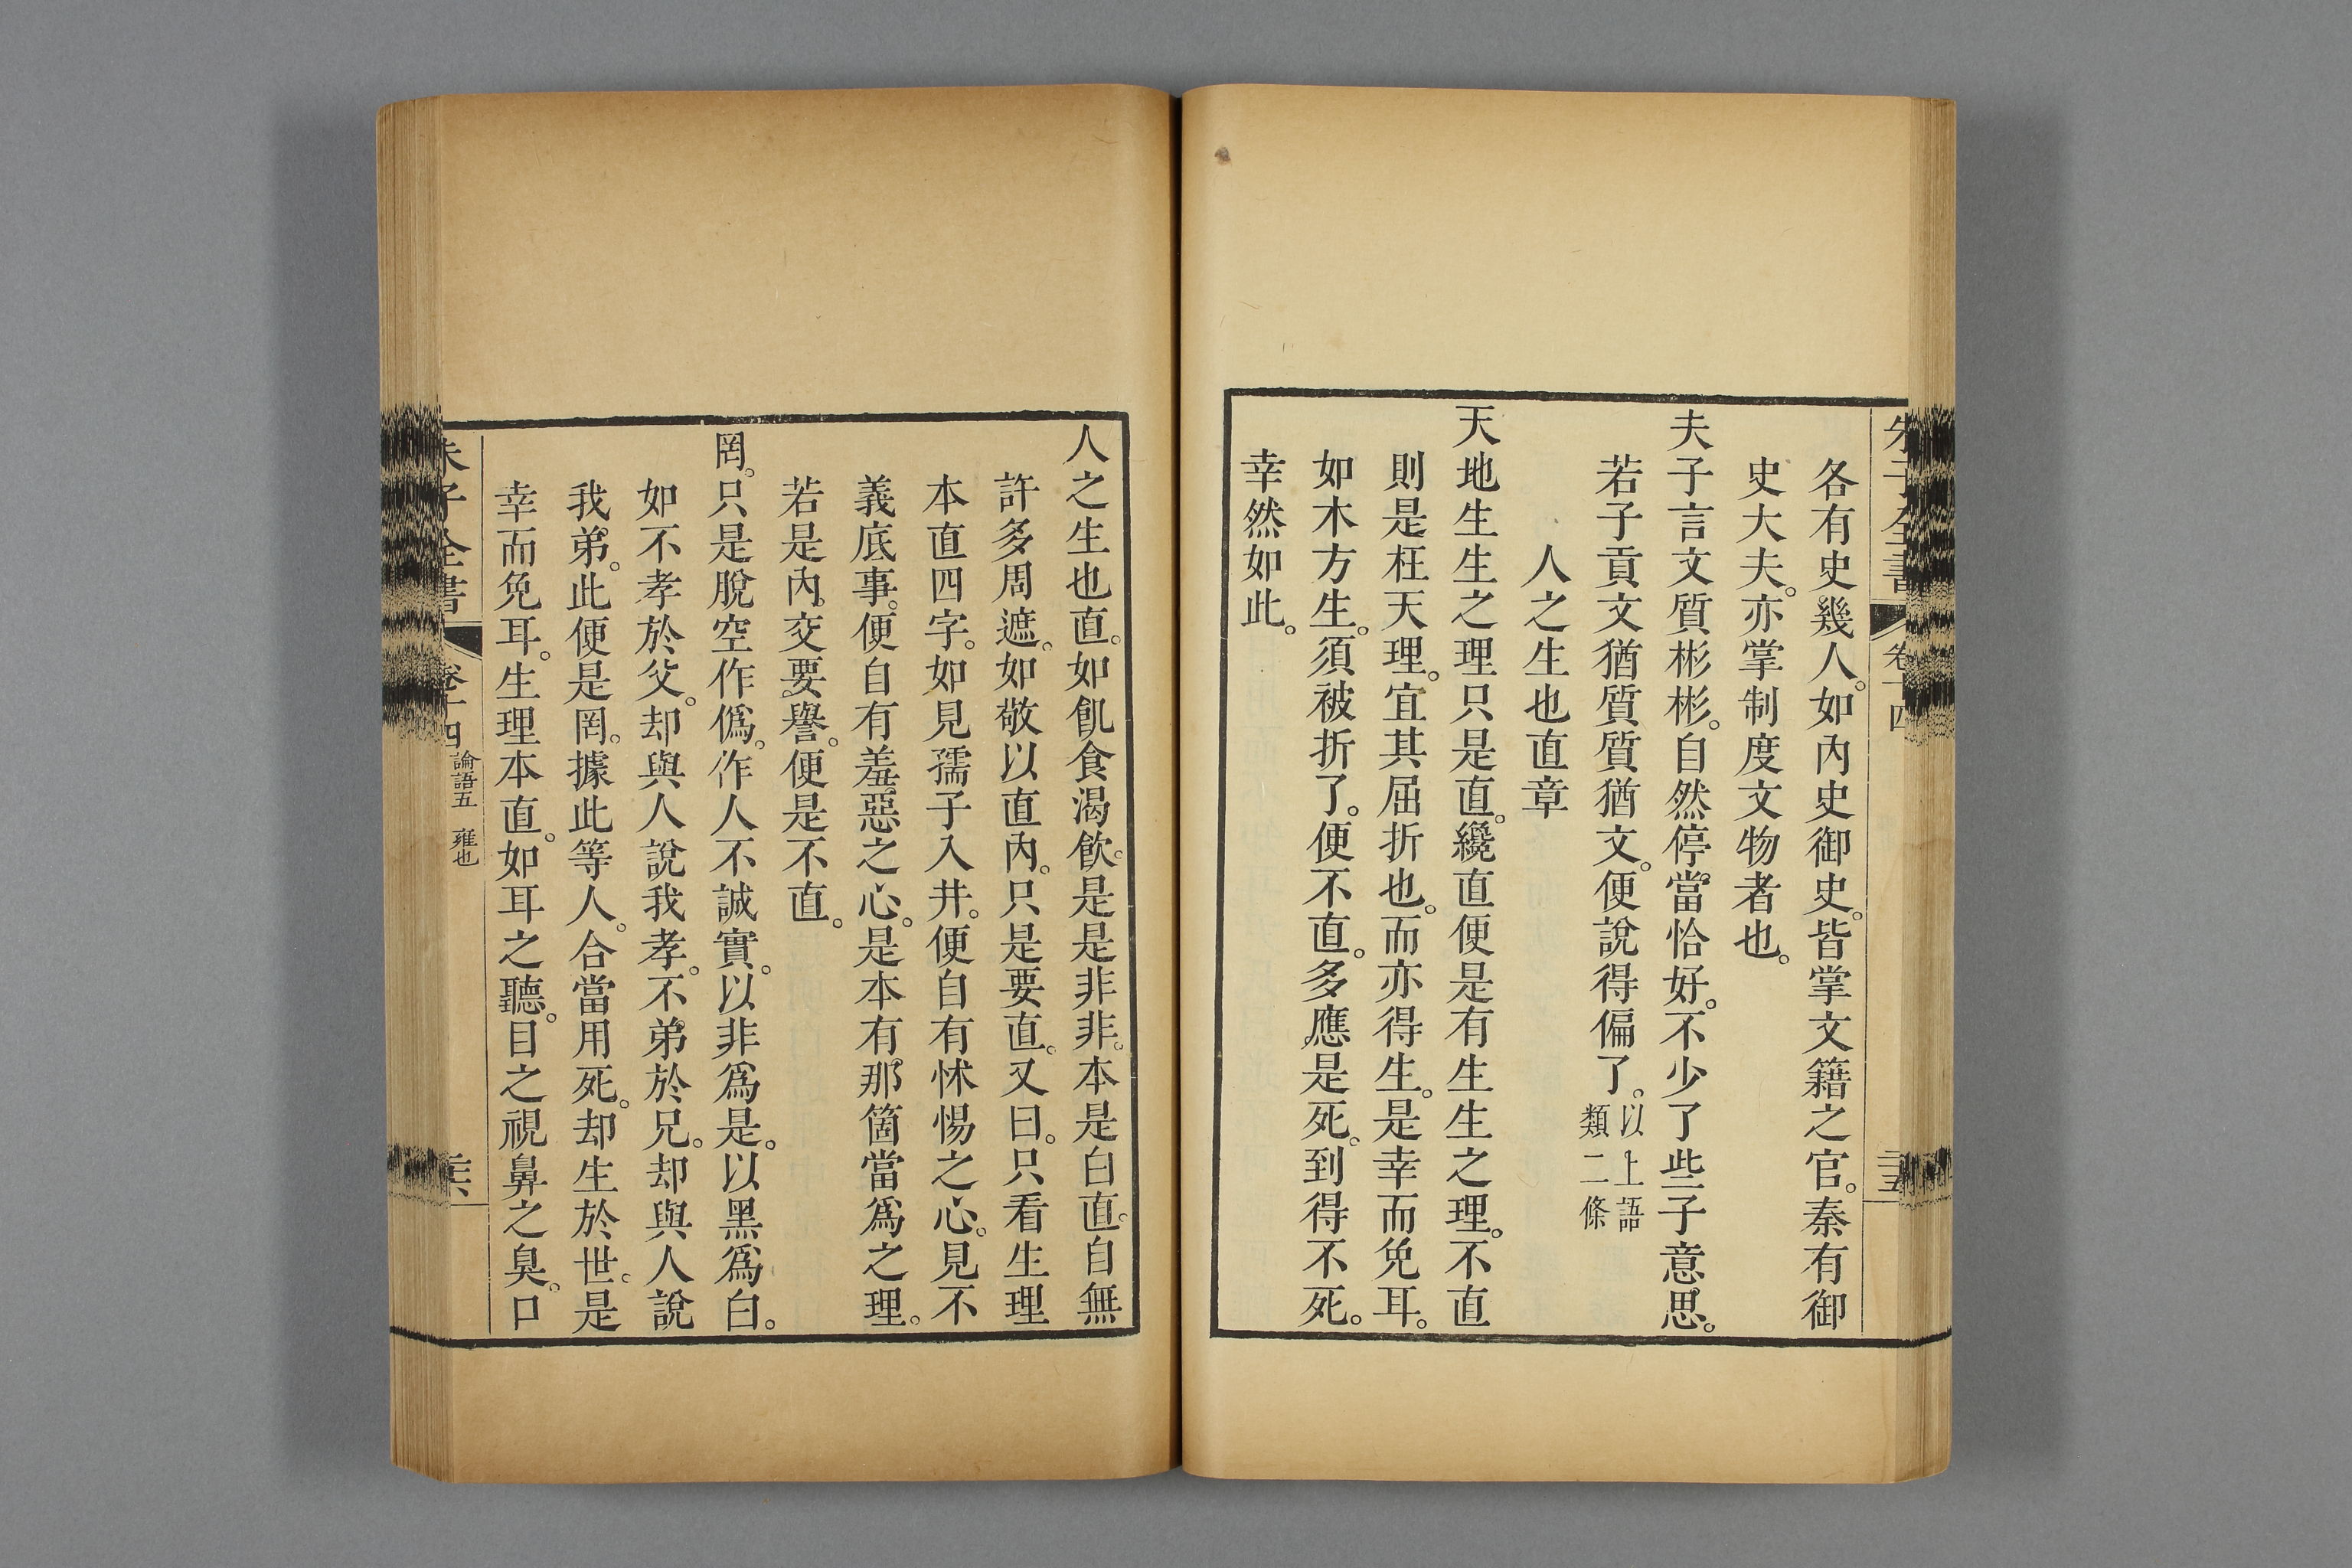 朱子全書 卷十四 二十五
各有史幾人。如內史御史。皆掌文籍之官。秦有御
史大夫。亦掌制度文物者也。
夫子言文質彬彬。自然停當恰好。不少了些子意思。
若子貢文猶質質猶文。便說得偏了。以上語
類二條
人之生也直章
天地生生之理只是直。纔直便是有生生之理。不直
則是枉天理。宜其屈折也。而亦得生。是幸而免耳。
如木方生。須被折了。便不直。多應是死。到得不死。
幸然如此。
人之生也直。如飢食渴飲。是是非非。本是白直。自無
許多周遮。如敬以直內。只是要直。又曰。只看生理
本直四字。如見孺子入井。便自有怵惕之心。見不
義底事。便自有羞惡之心。是本有那箇當爲之理。
若是內交要譽。便是不直。
罔。只是脫空作僞。作人不誠實。以非爲是。以黑爲白。
如不孝於父。却與人說我孝。不弟於兄。却與人說
我弟。此便是罔。據此等人。合當用死。却生於世。是
幸而免耳。生理本直。如耳之聽。目之視鼻之臭。口
朱子全書 卷十四 論語五 雍也 二十六